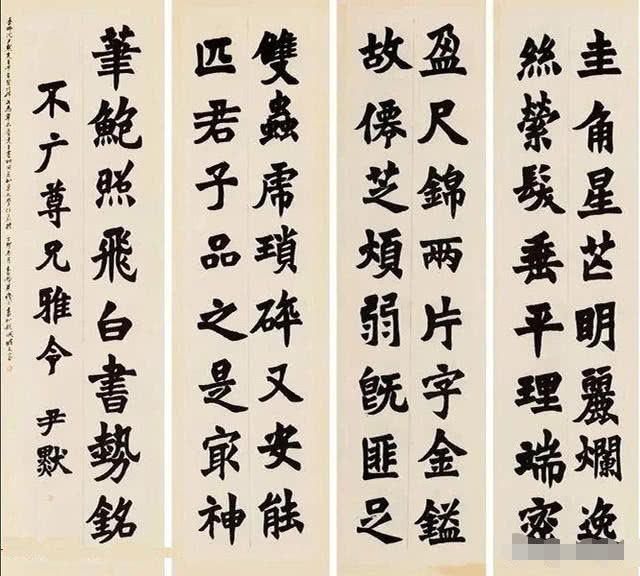 圭角星芒明麗爛逸
絲縈髮垂平理端密
盈尺錦兩片字金鎰
故僊芝煩弱旣匪足
雙蟲虎瑣碎又安能
匹君子品之是㝡神
筆鮑照飛白書勢銘
不广尊兄雅令 尹默